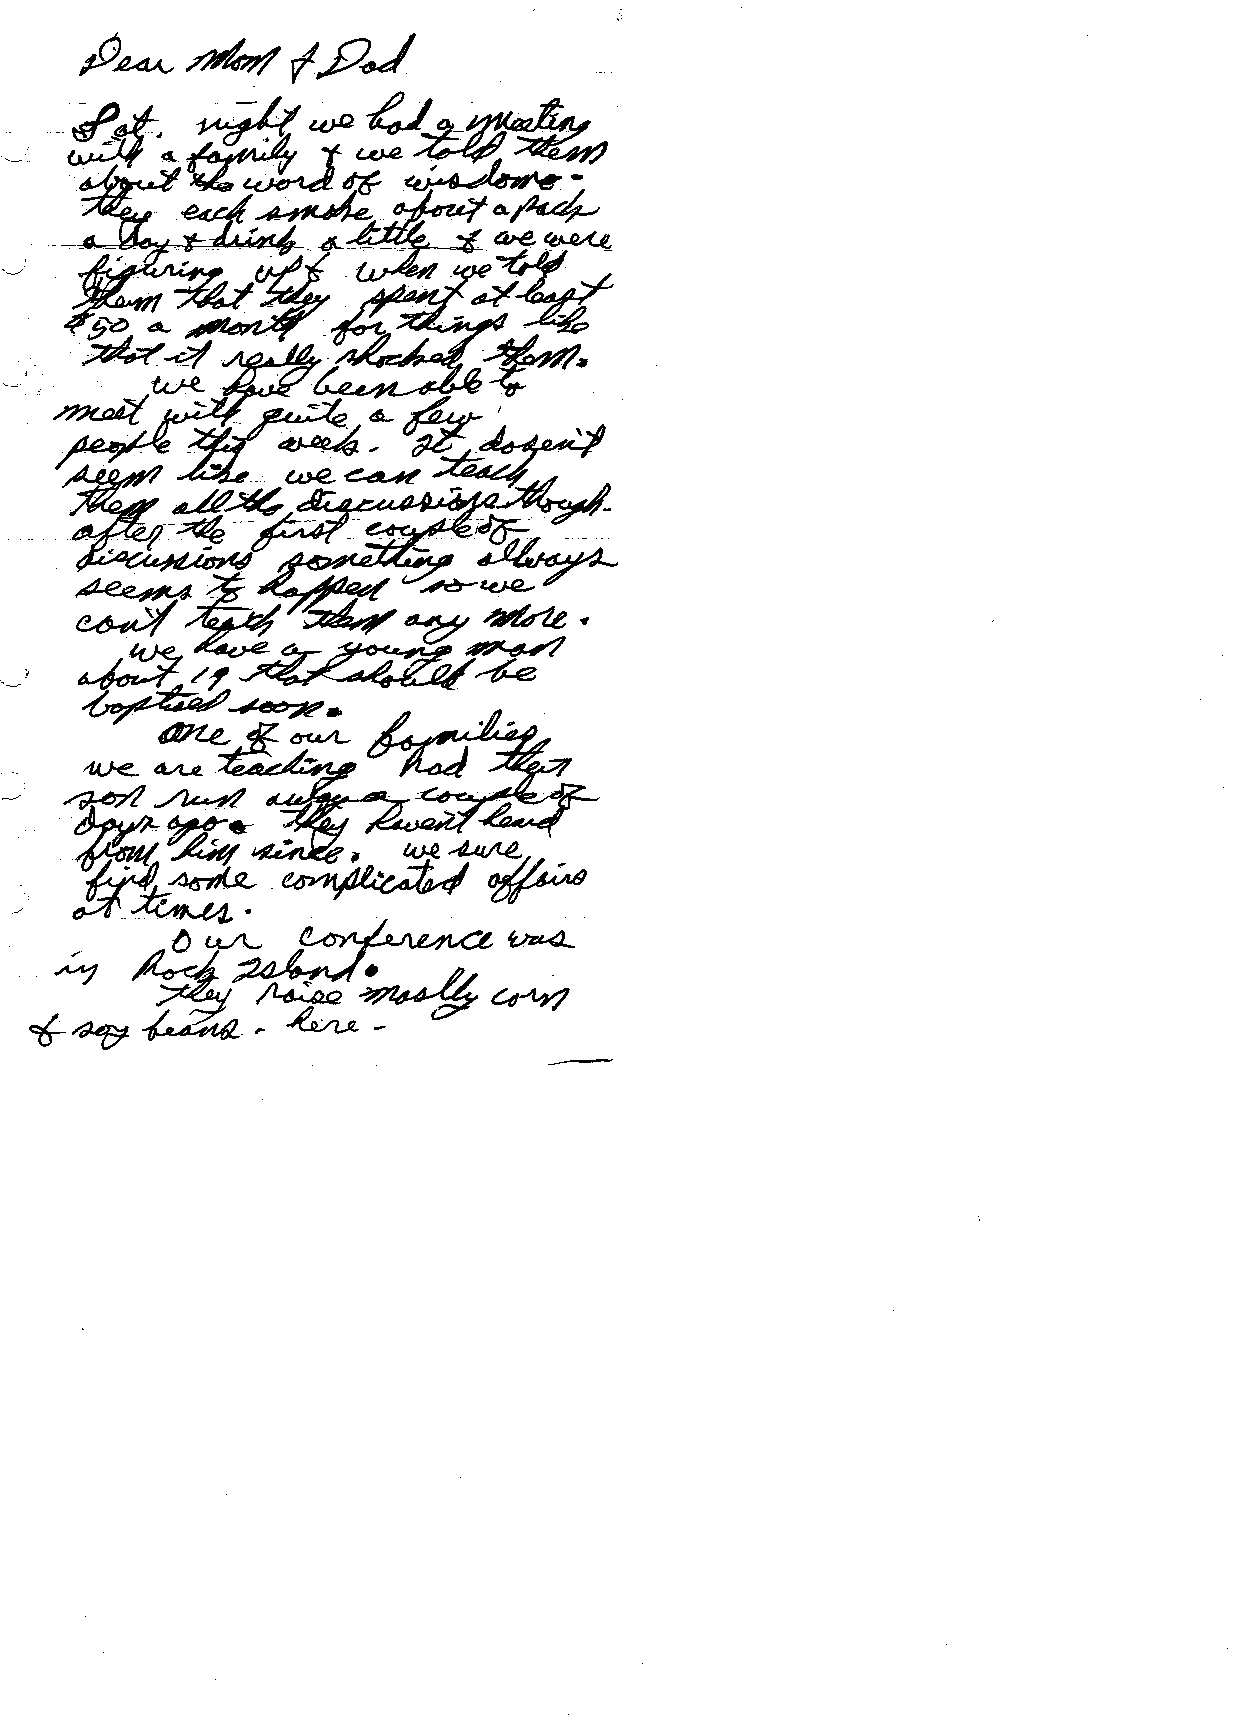 Dear Mom & Dad
Sat. night we had a meeting
with a family & we told them
about the word of wisdome.
they each smoke about a pack
a day & drink a little & we were
figuring up & when we told
them that they spent at least
$50 a month for things like
that it really shocked them.
we have been able to
meet with quite a few
people this week. It dosen't
seem like we can teach
them all the discussions though.
after the first couple of
discussions something always
seems to happen so we
can't teach them any more.
we have a young man
about 19 that should be
baptied soon.
One of our families
we are teaching had their
son run away a couple of
days ago. they haven't heard
from him since. we sure
find some complicated affairs
at times.
Our conference was
in Rock Island.
they raise mostly corn
& soy beans. here.